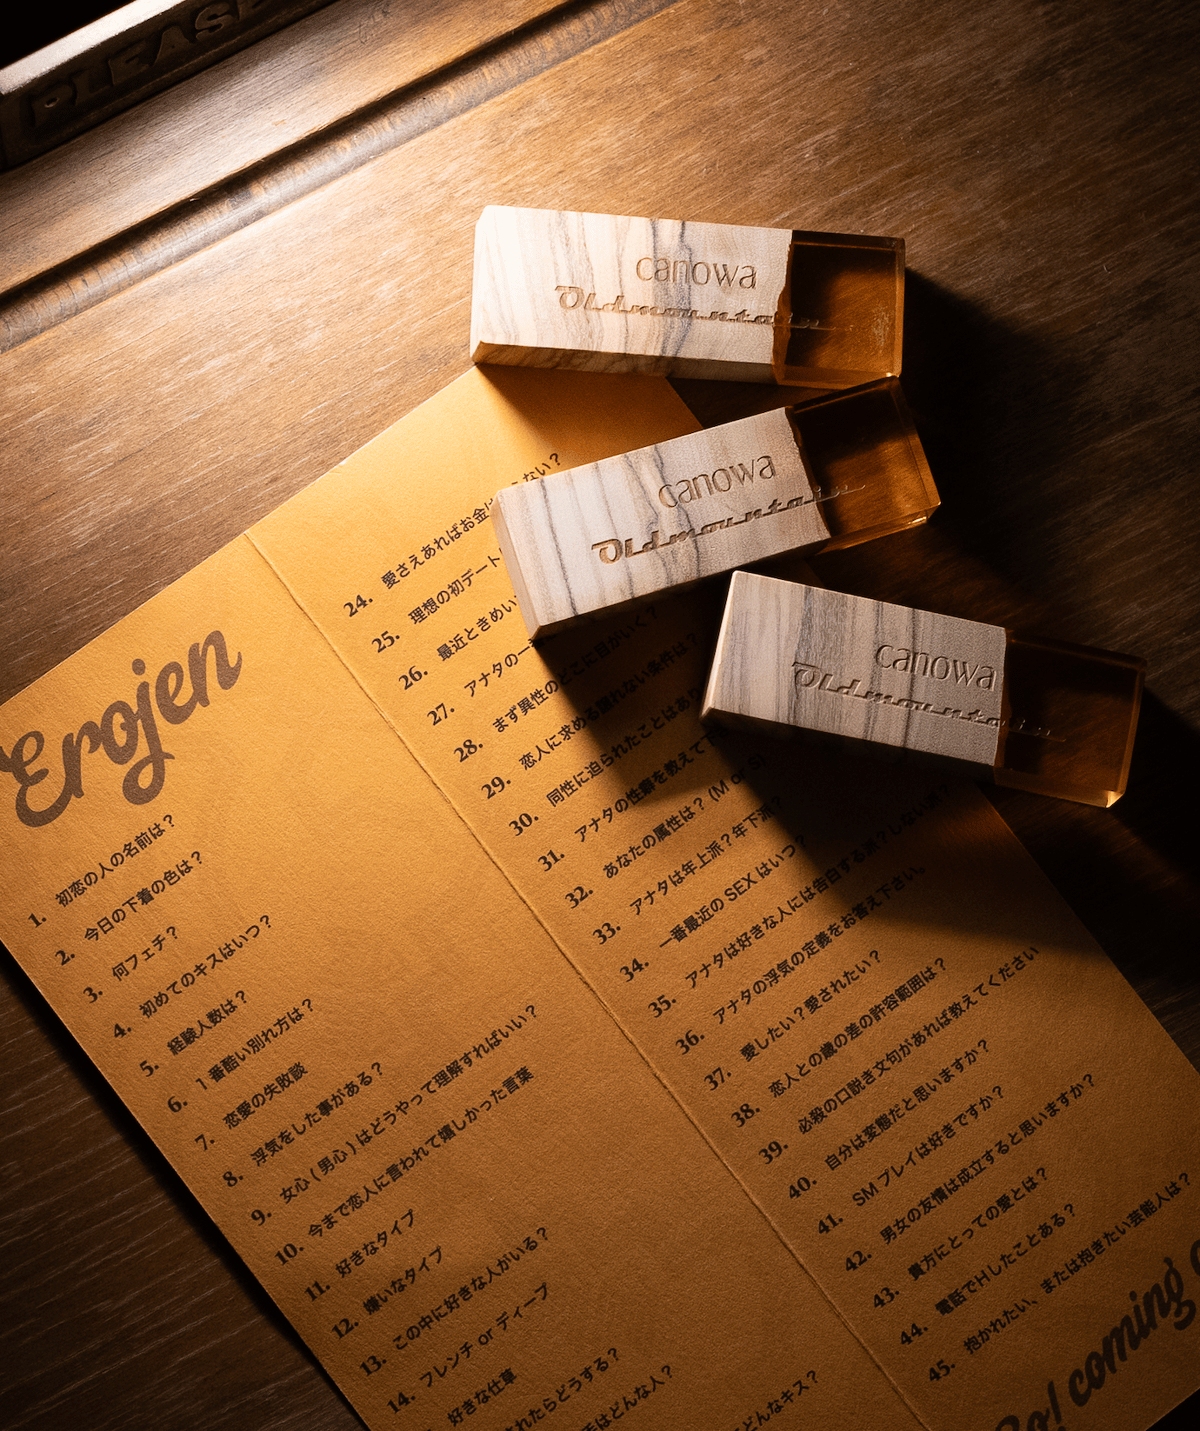 PLEASE
canowa
Oldmountain
canowa
Oldmountain
canowa
Oldmountain
Erojen
1. 初恋の人の名前は?
2. 今日の下着の色は?
3. 何フェチ?
4. 初めてのキスはいつ?
5. 経験人数は?
6. 1番酷い別れ方は?
7. 恋愛の失敗談
8. 浮気をした事がある?
9. 女心(男心)はどうやって理解すればいい?
10. 今まで恋人に言われて嬉しかった言葉
11. 好きなタイプ
12. 嫌いなタイプ
13. この中に好きな人がいる?
14. フレンチ or ディープ
好きな仕草
されたらどうする?
はどんな人?
どんなキス?
24. 愛さえあればお金は ない?
25. 理想の初デート
26. 最近ときめい
27. アナタの一
28. まず異性のどこに目がいく?
29. 恋人に求める譲れない条件は?
30. 同性に迫られたことはあり
31. アナタの性癖を教えて下
32. あなたの属性は? (M or S)
33. アナタは年上派?年下派?
34. 一番最近の SEX はいつ?
35. アナタは好きな人には告白する派?しない派?
36. アナタの浮気の定義をお答え下さい。
37. 愛したい?愛されたい?
38. 恋人との歳の差の許容範囲は?
39. 必殺の口説き文句があれば教えてください
40. 自分は変態だと思いますか?
41. SM プレイは好きですか?
42. 男女の友情は成立すると思いますか?
43. 貴方にとっての愛とは?
44. 電話でHしたことある?
45. 抱かれたい、または抱きたい芸能人は?
Go! coming